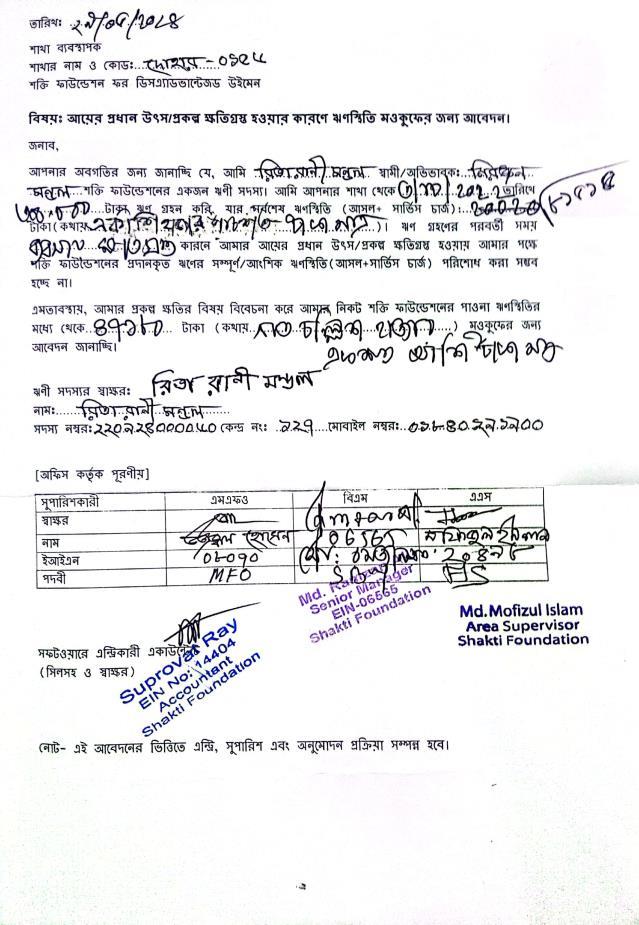 তারিখ:
শাখা ব্যবস্থাপক
শাখার নাম ও কোড: দোহার - ০১২৫
শক্তি ফাউন্ডেশন ফর ডিসএ্যাডভান্টেজড উইমেন
বিষয়: আয়ের প্রধান উৎস/প্রকল্প ক্ষতিগ্রস্ত হওয়ার কারণে ঋণস্থিতি মওকুফের জন্য আবেদন।
জনাব,
আপনার অবগতির জন্য জানাচ্ছি যে, আমি রিতা রানী মন্ডল স্বামী/অভিভাবক:
মন্ডল শক্তি ফাউন্ডেশনের একজন ঋণী সদস্য। আমি আপনার শাখা থেকে তারিখে
টাকা ঋণ গ্রহন করি, যার সর্বশেষ ঋণস্থিতি (আসল+ সার্ভিস চার্জ):
টাকা (কথায় একাশি হাজার )। ঋণ গ্রহণের পরবর্তী সময়
কারনে আমার আয়ের প্রধান উৎস/প্রকল্প ক্ষতিগ্রস্ত হওয়ায় আমার পক্ষে
শক্তি ফাউন্ডেশনের প্রদানকৃত ঋণের সম্পূর্ণ/আংশিক ঋণস্থিতি (আসল+সার্ভিস চার্জ) পরিশোধ করা সম্ভব
হচ্ছে না।
এমতাবস্থায়, আমার প্রকল্প ক্ষতির বিষয় বিবেচনা করে আমার নিকট শক্তি ফাউন্ডেশনের পাওনা ঋণস্থিতির
মধ্যে থেকে ৪৭১৮০ টাকা (কথায় সাত চল্লিশ হাজার) মওকুফের জন্য
আবেদন জানাচ্ছি। একশত আশি টাকা মাত্র
ঋণী সদস্যর স্বাক্ষর: রিতা রানী মন্ডল
নাম: রিতা রানী মন্ডল
সদস্য নম্বর: কেন্দ্র নং: মোবাইল নম্বর:
[অফিস কর্তৃক পূরণীয়]
সুপারিশকারী এমএফও বিএম এএস
স্বাক্ষর
নাম হোসেন
ইআইএন ০৮০৭০
পদবী MFO AS
Md.
Senior Manager
EIN-06565
Shakti Foundation
Md.Mofizul Islam
Area Supervisor
Shakti Foundation
সফটওয়ারে এন্ট্রিকারী একাউন্টেন্ট
(সিলসহ ও স্বাক্ষর)
Suprovat Ray
EIN No: 14404
Accountant
Shakti Foundation
নোট- এই আবেদনের ভিত্তিতে এন্ট্রি, সুপারিশ এবং অনুমোদন প্রক্রিয়া সম্পন্ন হবে।